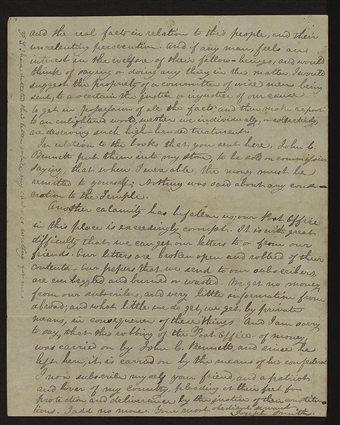 and the real facts in relation to this people, and their
unrelenting persecution. And if any man, feels an
interest in the welfare of their fellow-beings, and would
think of saying or doing any thing in the matter I would
suggest the propriety of a committee of wise men being
sent, to ascertain the justice or injustice of our cause
to get in possession of all the facts, and then make report
to an enlightened world, whether we individually, or collectively,
are deserving such high handed treatment.
In relation to the books that you sent here, John C.
Bennett put them into my store, to be sold on commission
saying, that when I was able, the money must be
remitted to yourself; Nothing was said about any cons-
ecration to the Temple.
Another calamity has befallen us; our Post Office
in this place is exceedingly corrupt. It is with great
difficulty that we can get our letters to or from our
friends. Our letters are broken open and robbed of their
contents. Our papers that we send to our subscribers
are embezzled and burned or wasted. We get no money
from our subscribers, and very little information from
abroad; and what little we do get, we get by private
means, in consequence of these things. And I am sorry
to say, that this robbing of the Post Office of money,
was carried on by John C. Bennett; and since he
left here, it is carried on by the means of his confederates
I now subscribe myself your friend, and a patriot
and lover of my country, pleading at their feet for
protection and deliverance by the justice of their constitu-
tions. I add no more. Your most obedient servant
Joseph Smith